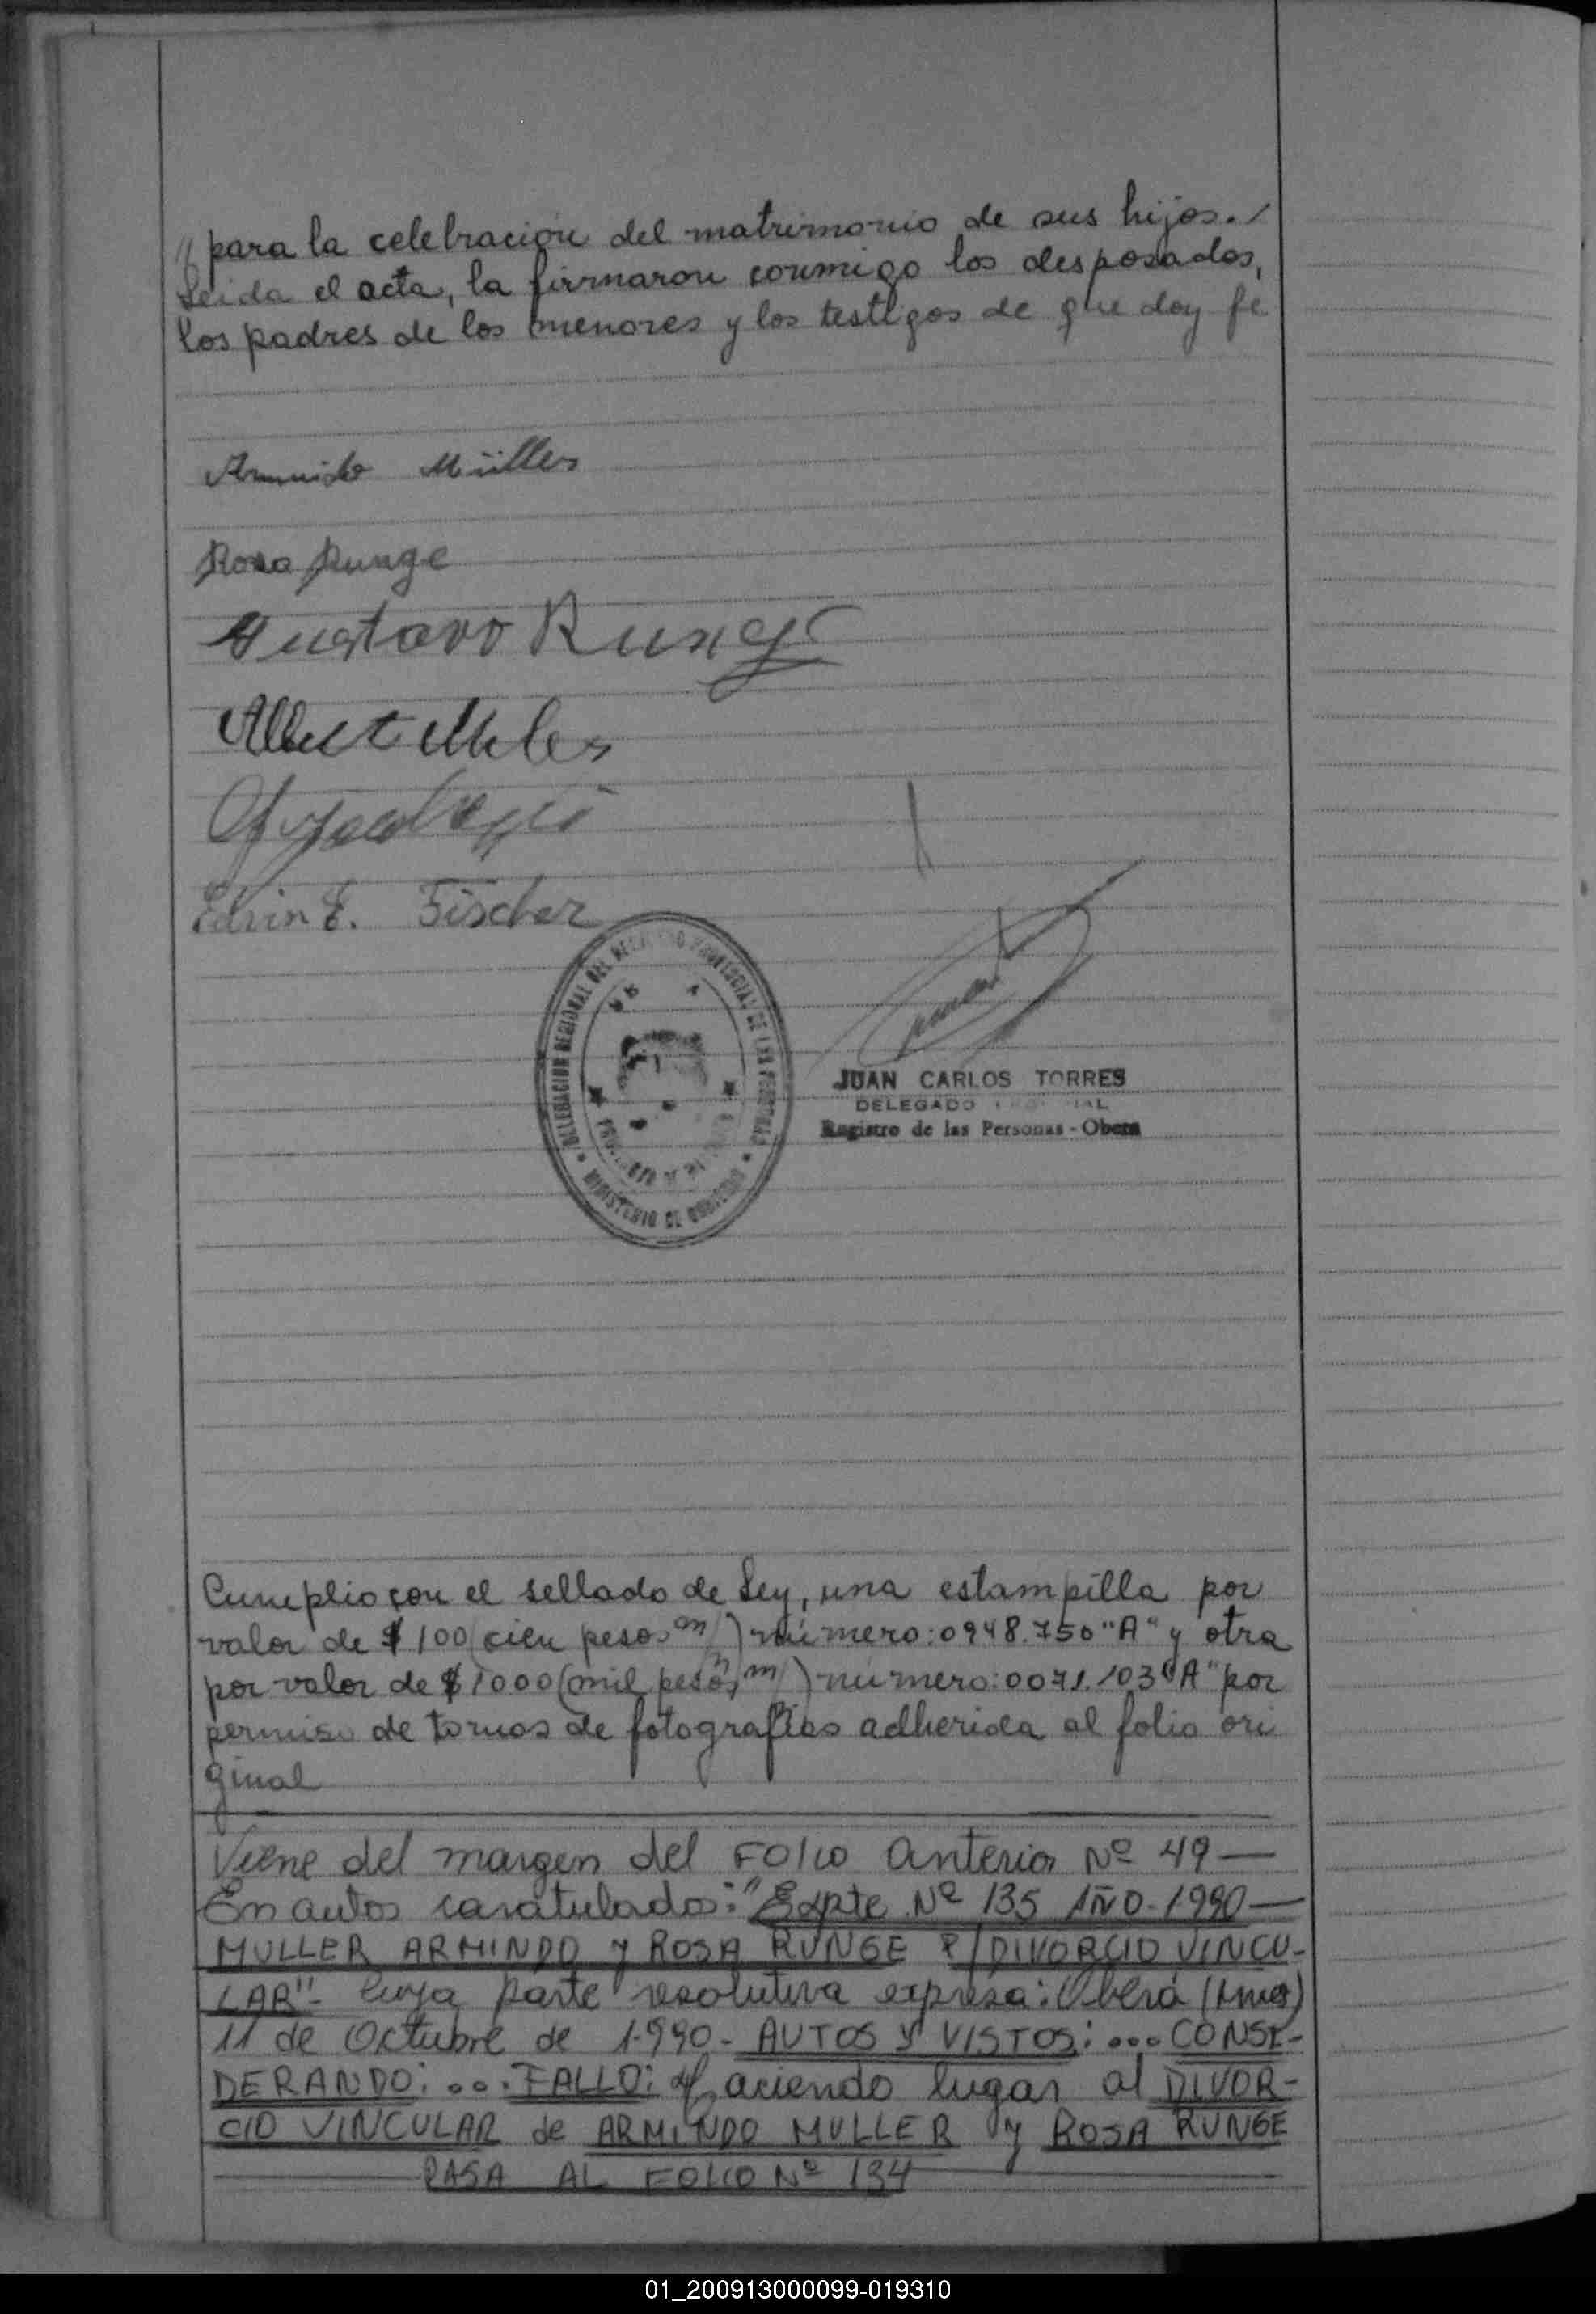 // para la celebración del matrimonio de sus hijos.
Leida el acta, la firmaron conmigo los desposados,
los padres de los menores y los testigos de que doy fe
Armindo Müller
Rosa Runge
Gustavo Runge
Albert
Edvin E. Fischer
DELEGACION REGIONAL DEL REGISTRO PROVINCIAL DE LAS PERSONAS
MINISTERIO DE GOBIERNO
JUAN CARLOS TORRES
DELEGADO
Registro de las Personas - Obera
Cumplio con el sellado de Ley, una estampilla por
valor de $ 100 (cien pesos m/n) número: 0948.750 "A" y otra
por valor de $ 1000 (mil pesos m/n) número: 0071.103 "A" por
permiso de tomas de fotografías adherida al folio ori
ginal
Viene del margen del FOLIO anterior Nº 49 —
En autos caratulados: "Expte Nº 135 AÑO - 1990 —
MULLER ARMINDO y ROSA RUNGE S/DIVORCIO VINCU-
LAR" - Cuya parte resolutiva expresa: Oberá (Mnes)
11 de Octubre de 1.990 - AUTOS Y VISTOS: ... CONSI-
DERANDO: ... FALLO: Haciendo lugar al DIVOR-
CIO VINCULAR de ARMINDO MULLER y ROSA RUNGE
PASA AL FOLIO Nº 134
01_200913000099-019310